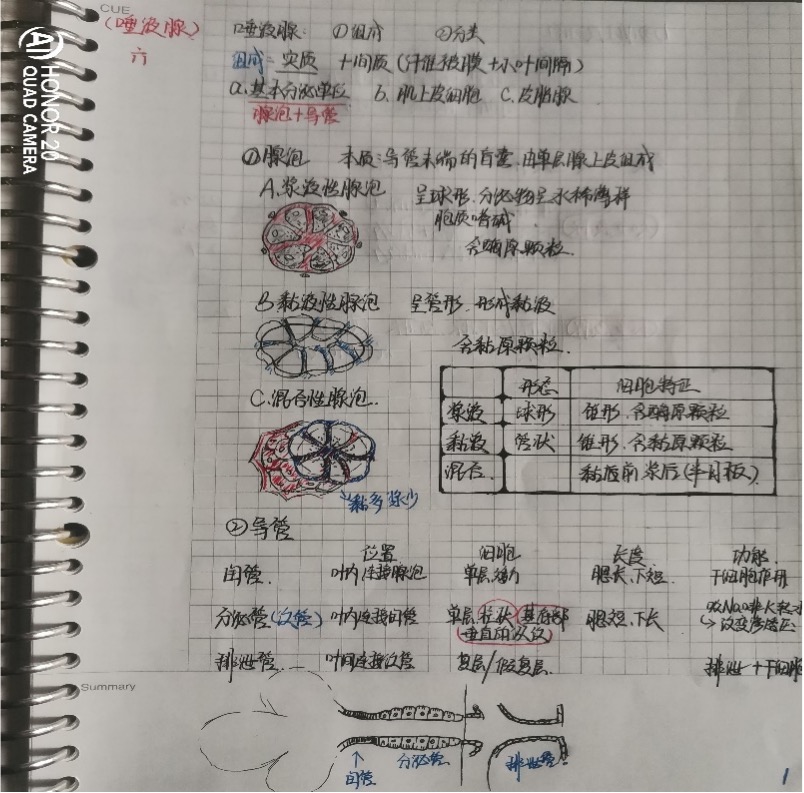 CUE
(唾液腺)
六
唾液腺: ①组成 ②分类
组成= 实质 +间质(纤维被膜+小叶间隔)
a.基本分泌单位 b.肌上皮细胞 c.皮脂腺
腺泡+导管
①腺泡 本质:导管末端的盲囊,由单层腺上皮组成
A.浆液性腺泡 呈球形.分泌物呈水样薄样
胞质嗜碱.
含酶原颗粒.
B.黏液性腺泡 呈管形.形成黏液
含黏原颗粒.
C.混合性腺泡.
黏多浆少
形态 细胞特征
浆液 球形 锥形.含酶原颗粒
黏液 管状 锥形.含黏原颗粒
混合. 黏液前浆后(半月板).
②导管
位置 细胞 长度 功能
闰管. 叶内连接腺泡 单层 腮长.下短. 干细胞作用
分泌管(纹管) 叶内连接闰管 单层柱状 基底部 腮短.下长
垂直的纹纹
排泄管. 叶间连接纹管 复层/假复层. 排泄+干细胞
Summary
闰管 分泌管 排泄管
1
HONOR 20
QUAD CAMERA